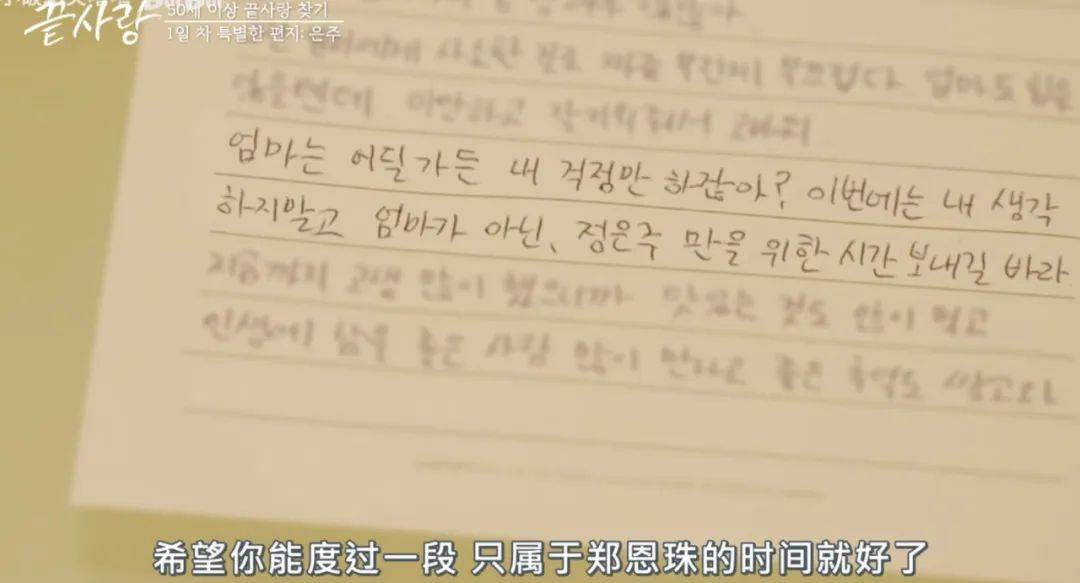 끝사랑
50세 이상 끝사랑 찾기
1일 차 특별한 편지: 은주
미안하고
엄마는 어딜가든 내 걱정만 하잖아? 이번에는 내 생각
하지말고 엄마가 아닌, 정은주 만을 위한 시간 보내길 바라
지금까지 고생 많이 했으니까 맛있는 것도 많이 먹고
인생에 남을 좋은 사람 많이 만나고 좋은 추억도 쌓고와
希望你能度过一段 只属于郑恩珠的时间就好了